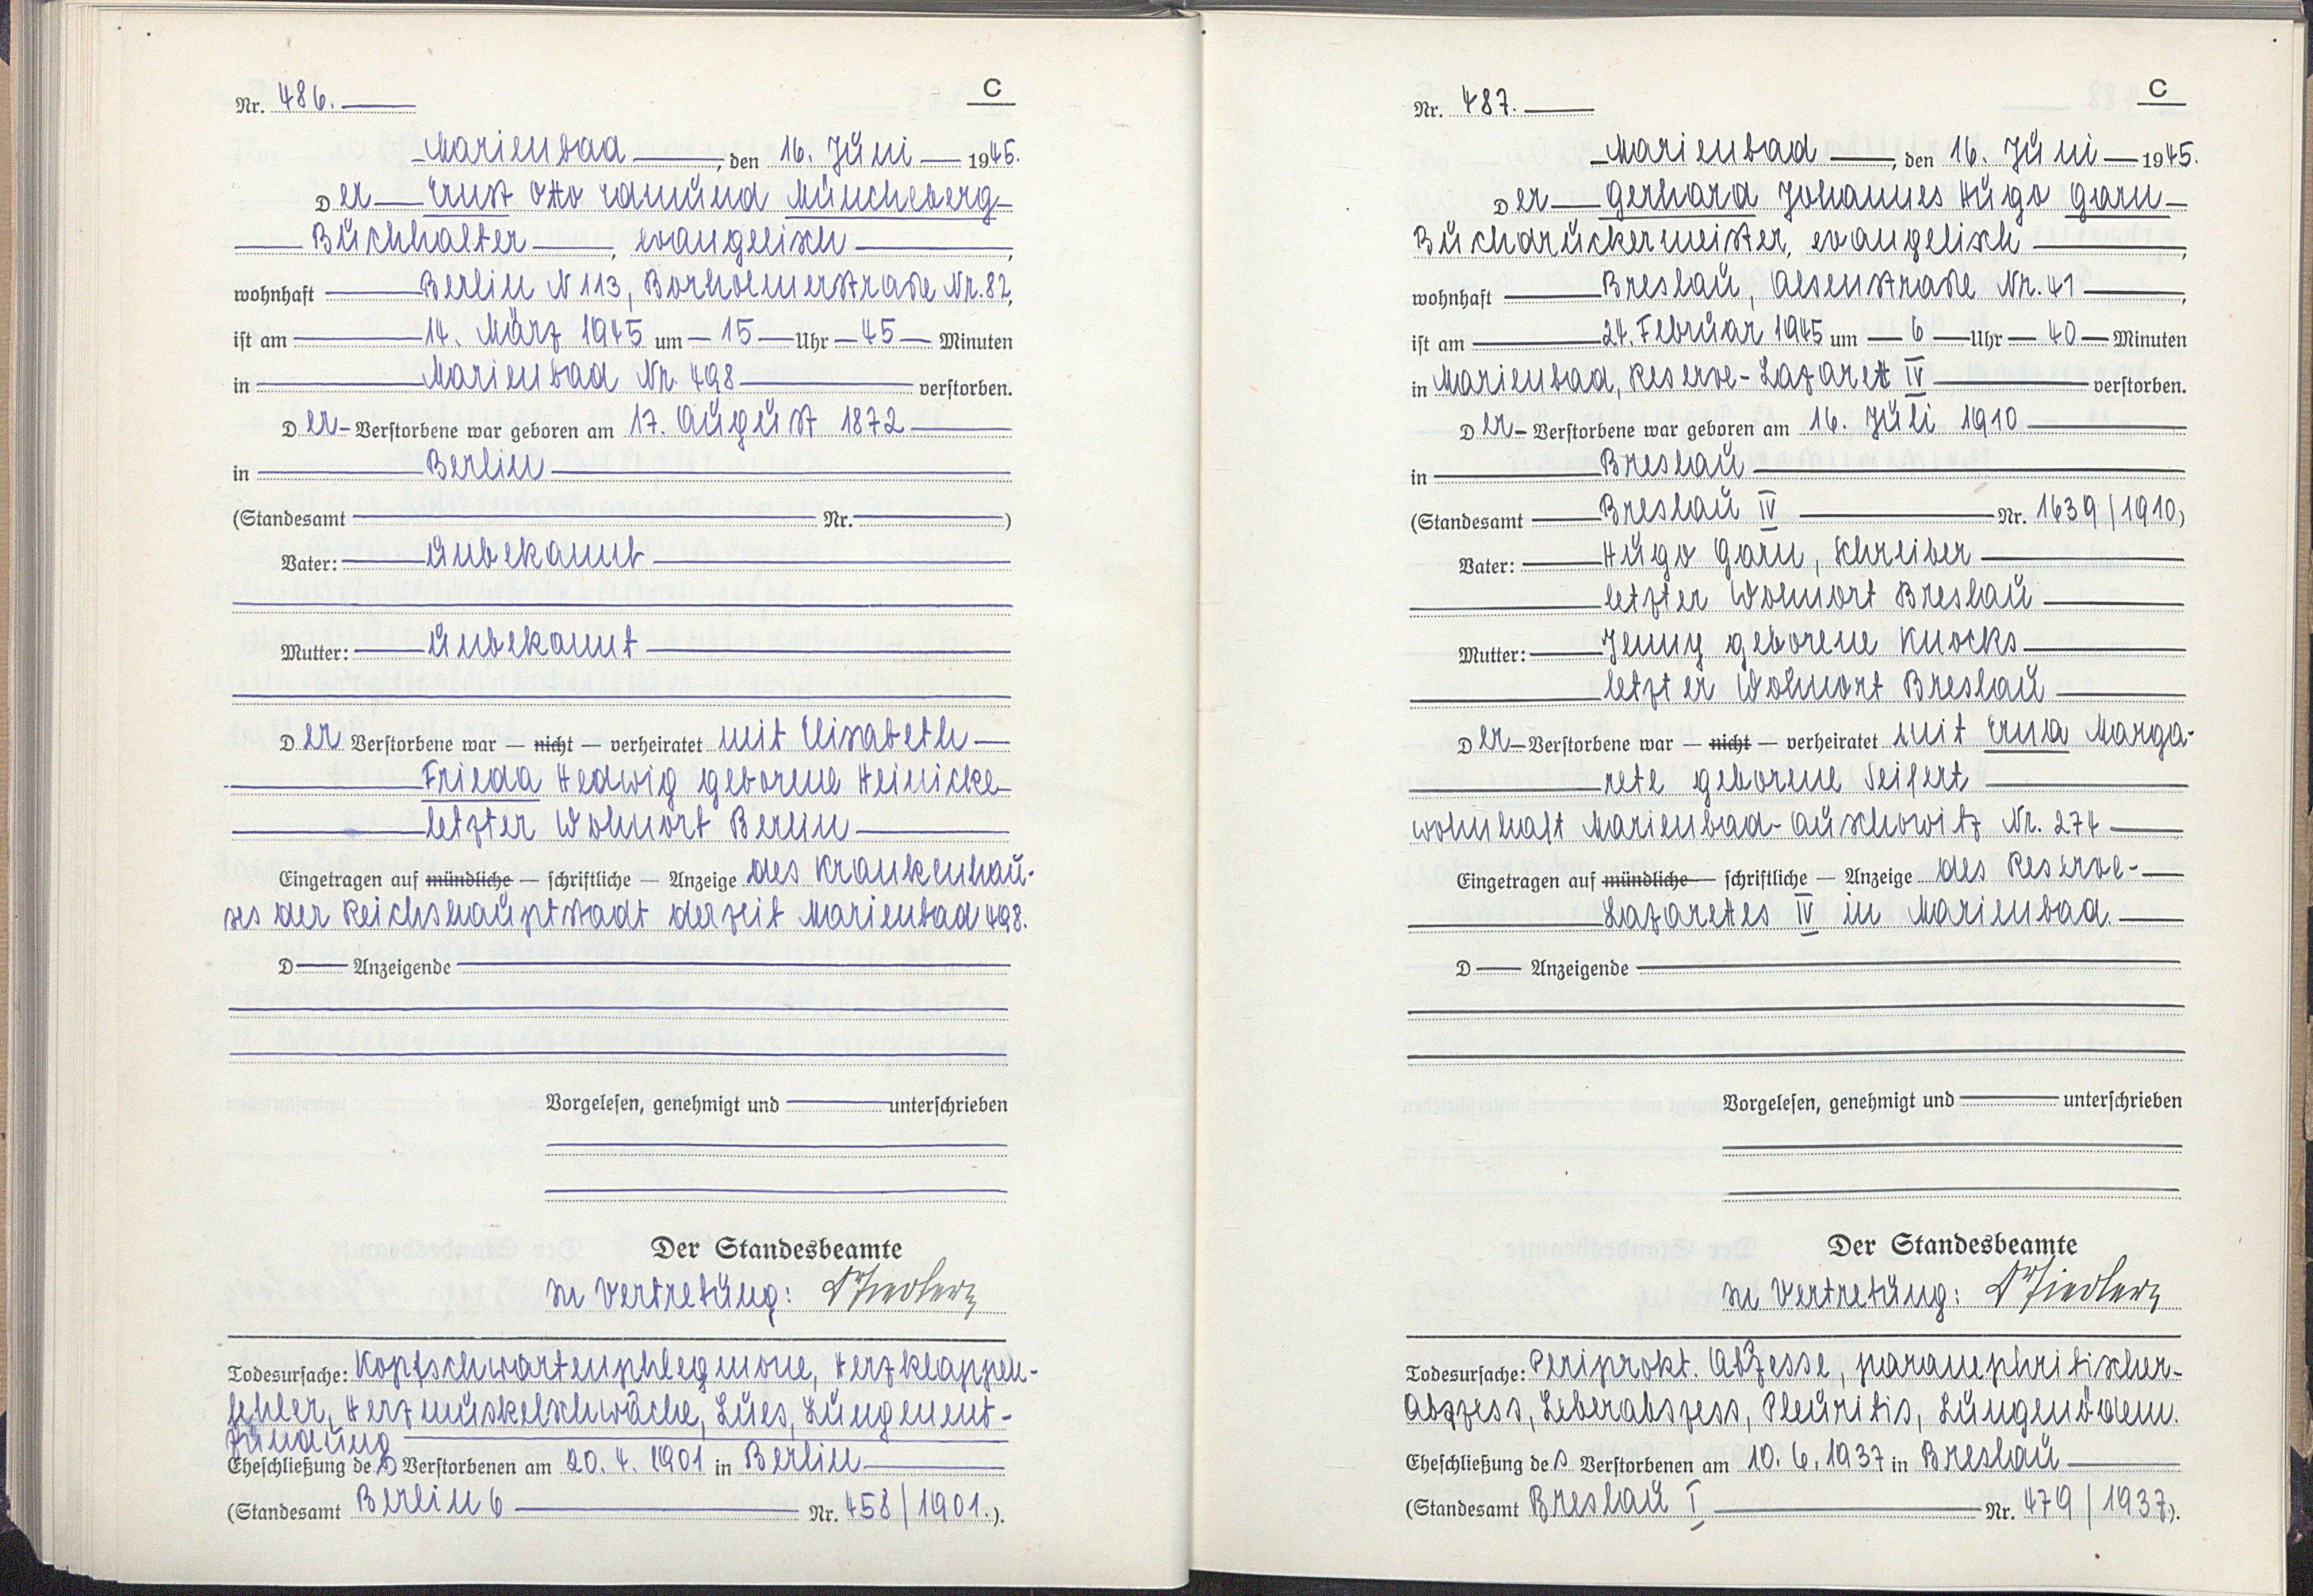 C
Nr. 486.
Marienbad, den 16. Juni 1945.
Der Ernst Otto Edmund Müncheberg
Buchhalter, evangelisch,
wohnhaft Berlin N 113, Borholmerstraße Nr. 82,
ist am 14. März 1945 um 15 Uhr 45 Minuten
in Marienbad Nr. 498 verstorben.
Der Verstorbene war geboren am 17. August 1872
in Berlin
(Standesamt Nr. )
Vater: unbekannt
Mutter: unbekannt
Der Verstorbene war — nicht — verheiratet mit Elisabeth
Frieda Hedwig geborene Heinicke
letzter Wohnort Berlin
Eingetragen auf mündliche — schriftliche — Anzeige des Krankenhau-
ses der Reichshauptstadt derzeit Marienbad 498.
D Anzeigende
Vorgelesen, genehmigt und unterschrieben
Der Standesbeamte
In Vertretung: Dr Fiedler
Todesursache: Kopfschwartenphlegmone, Herzklappen-
fehler, Herzmuskelschwäche, Lues, Lungenent-
zündung
Eheschließung des Verstorbenen am 20. 4. 1901 in Berlin
(Standesamt Berlin 6 Nr. 458/1901.).
C
Nr. 487.
Marienbad, den 16. Juni 1945.
Der Gerhard Johannes Hugo Garn
Buchdruckermeister, evangelisch,
wohnhaft Breslau, Alsenstraße Nr. 41,
ist am 24. Februar 1945 um 6 Uhr 40 Minuten
in Marienbad, Reserve-Lazarett IV verstorben.
Der Verstorbene war geboren am 16. Juli 1910
in Breslau
(Standesamt Breslau IV Nr. 1639/1910)
Vater: Hugo Garn, Schreiber
letzter Wohnort Breslau
Mutter: Jenny geborene Knocks
letzter Wohnort Breslau
Der Verstorbene war — nicht — verheiratet mit Erna Marga-
rete geborene Seifert
wohnhaft Marienbad-Auschowitz Nr. 274
Eingetragen auf mündliche — schriftliche — Anzeige des Reserve-
Lazarettes IV in Marienbad.
D Anzeigende
Vorgelesen, genehmigt und unterschrieben
Der Standesbeamte
In Vertretung: Dr Fiedler
Todesursache: Periprokt. Abszesse, paranephritischer
Abszess, Leberabszess, Pleuritis, Lungenödem.
Eheschließung des Verstorbenen am 10. 6. 1937 in Breslau
(Standesamt Breslau I Nr. 479/1937.).